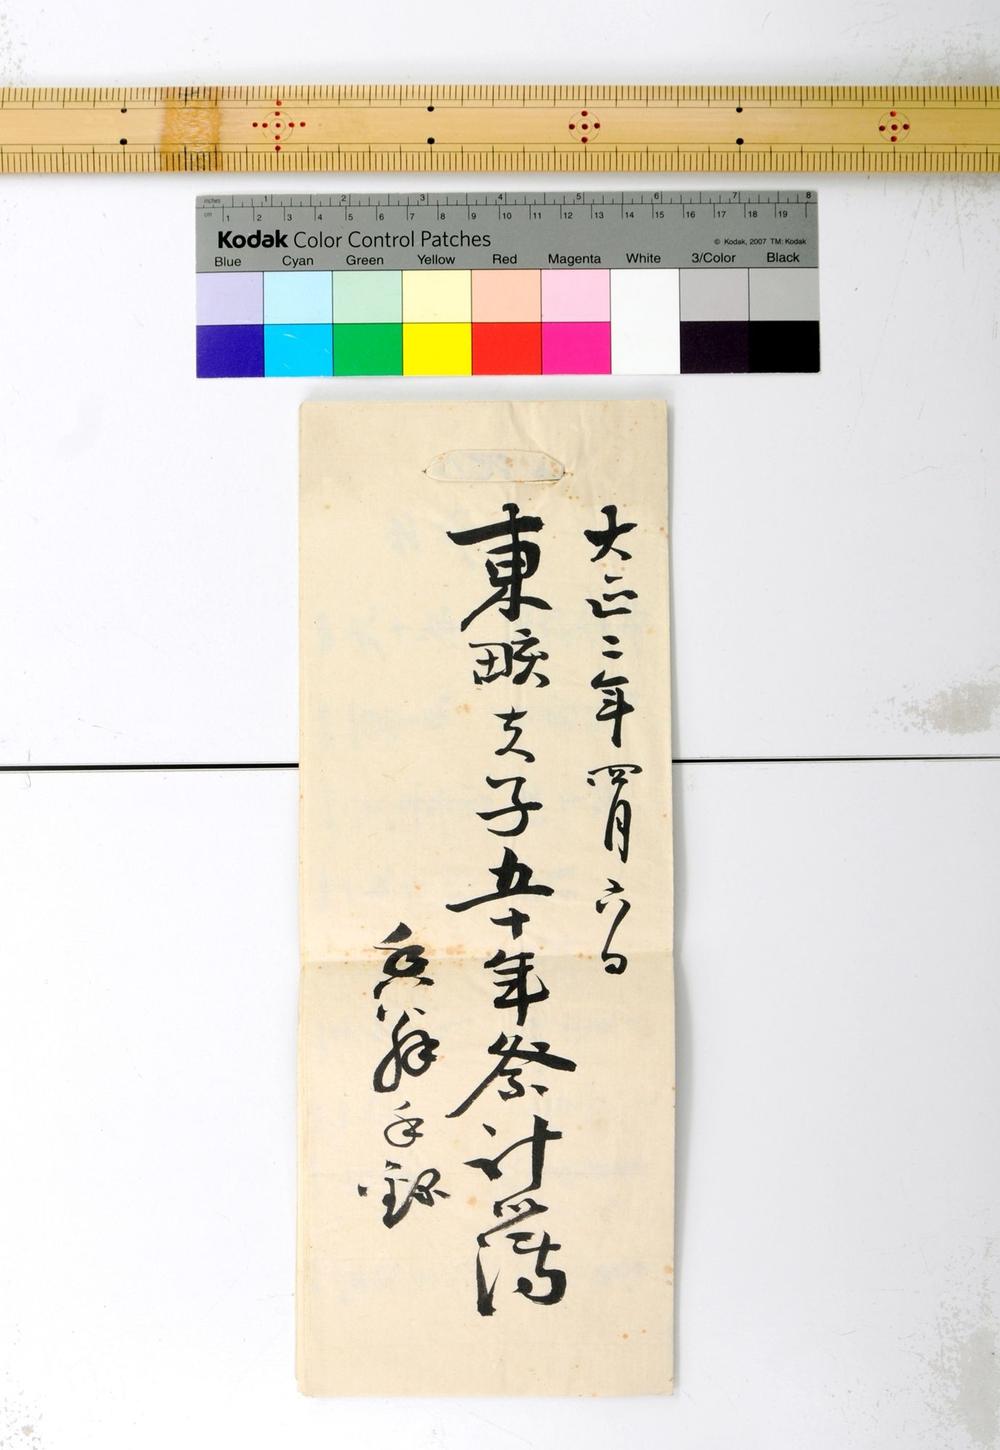 inches 1 2 3 4 5 6 7 8
cm 1 2 3 4 5 6 7 8 9 10 11 12 13 14 15 16 17 18 19
Kodak Color Control Patches
© Kodak, 2007 TM: Kodak
Blue Cyan Green Yellow Red Magenta White 3/Color Black
大正二年四月六日
東畡夫子五十年祭計簿
手録